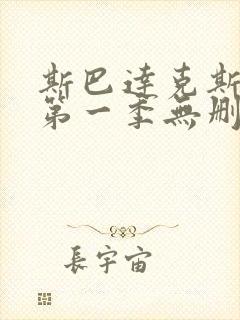 斯巴達克斯
第一季無刪
長宇宙